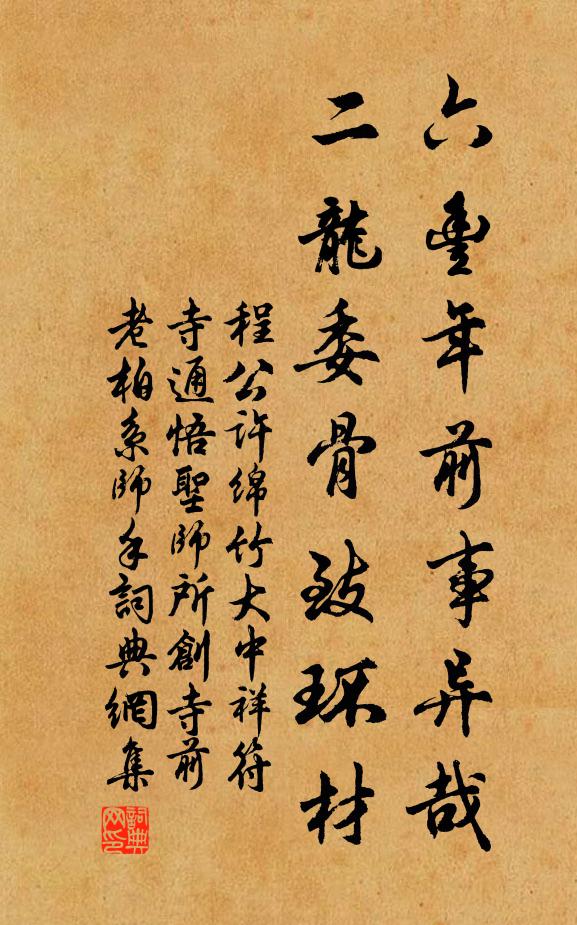 六豐年前事异哉
二龍委骨致环材
程公許綿竹大中祥符
寺通悟聖師所創寺前
老柏系師手詞典網集
詞典网印